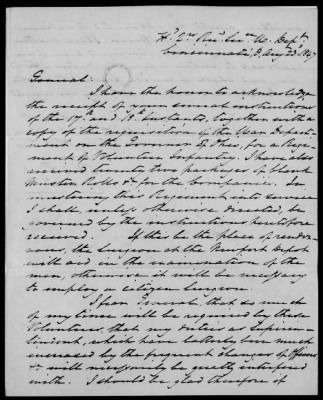 Hd. Qrs. Rect. Ser. W. Dept.
Cincinnati, O. Aug 23d 1847
General:
I have the honor to acknowledge
the receipt of your several instructions
of the 17th and 18th instants, together with a
copy of the requisition of the War Depart-
ment on the Governor of Ohio, for a Regi-
ment of Volunteer Infantry. I have also
received two packages of blank
Muster Rolls &c for the Companies. In
mustering this Regiment into service
I shall, unless otherwise directed, be
governed by the instructions heretofore
received. If this be the place of rendez-
vous, the Surgeon at the Newport Depot
will aid in the examination of the
men, otherwise it will be necessary
to employ a citizen Surgeon.
I fear General, that so much
of my time will be required by these
Volunteers, that my duties as Superin-
tendent, which have latterly been much
increased by the frequent changes of Officers
&c will necessarily be greatly interfered
with. I should be glad therefore if